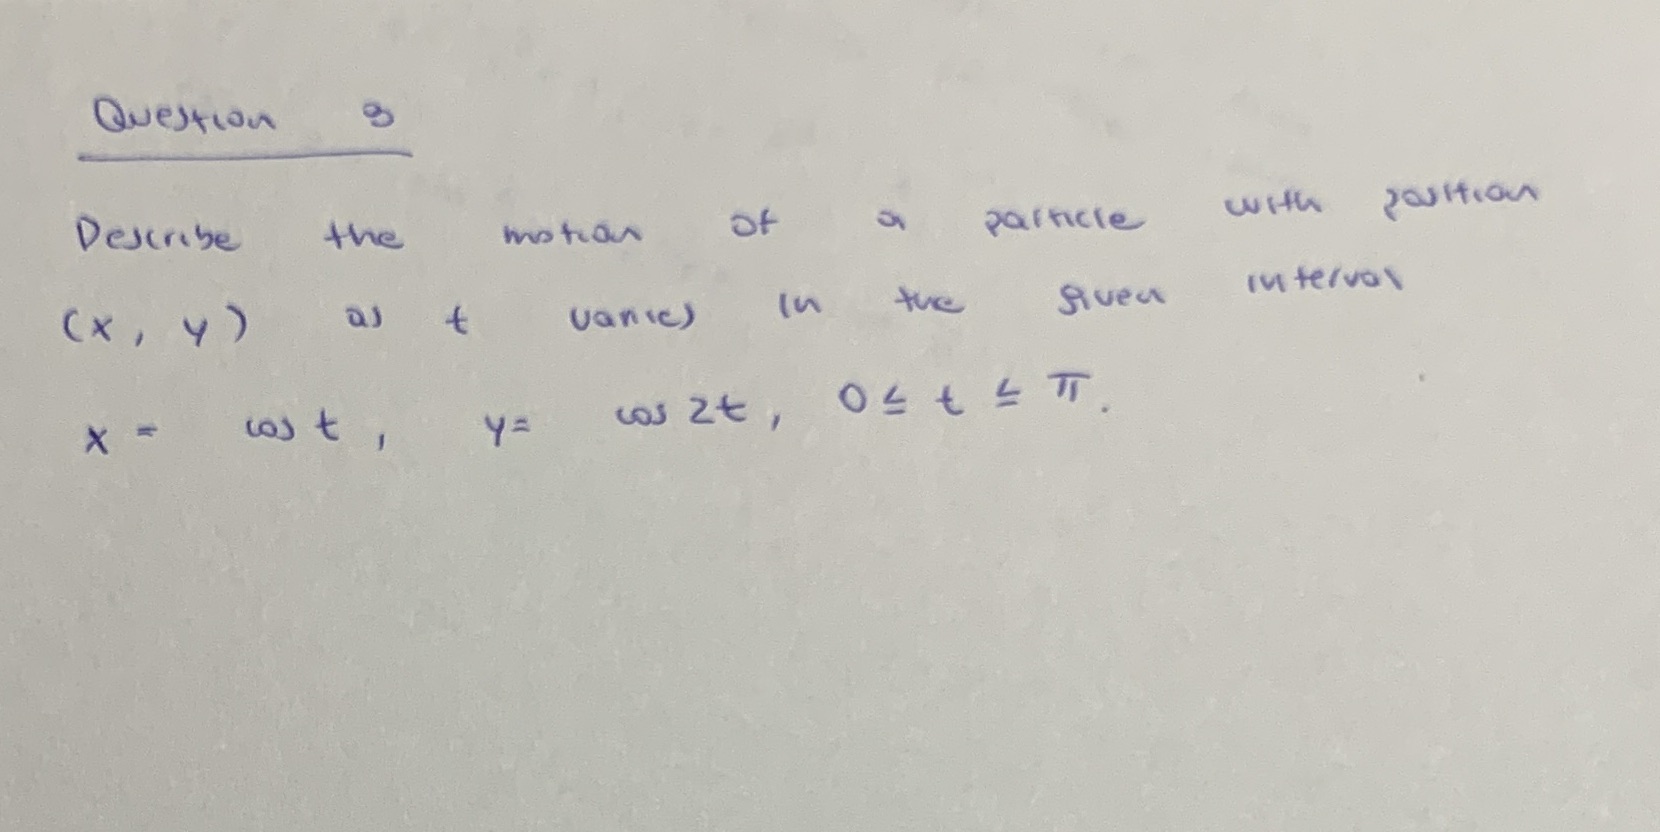 Question 3
Describe the motion of a particle with position
(x, y) as t varies in the given interval
x = cos t, y = cos 2t, 0 ≤ t ≤ π.